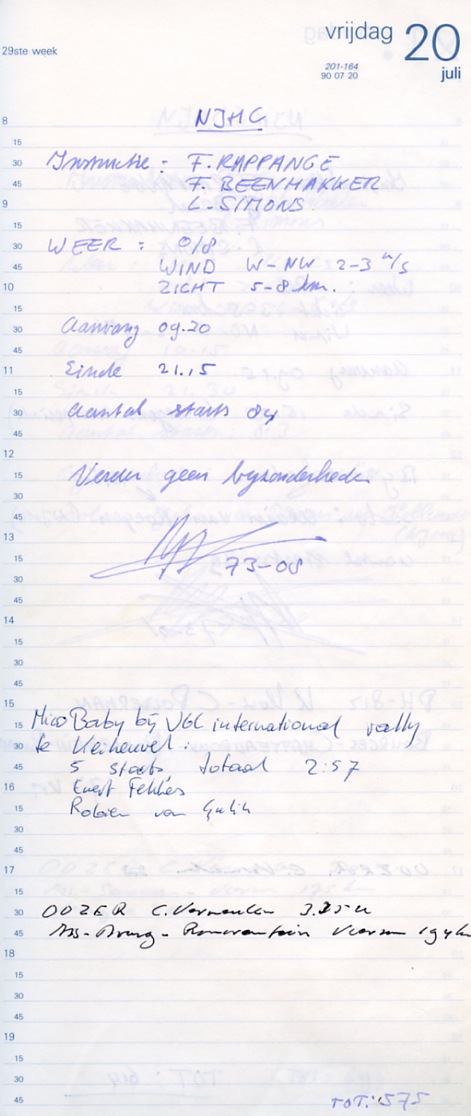 29ste week
vrijdag 20
juli
201-164
90 07 20
NJMG
Instructie: F. RAPPANGE
F. BEENHAKKER
L. SIMONS
WEER: 0/8
WIND W-NW 2-3 m/s
ZICHT 5-8 km.
Aanvang 09.20
Einde 21.15
Aantal starts 84
Verder geen byzonderheden
73-08
Mico Baby bij VGC international rally
te Keiheuvel:
5 starts, totaal 2:57
Evert Fekkes
Robien van Gulik
OOZER C. Vermeulen
TOT: 575
8
15
30
45
9
15
30
45
10
15
30
45
11
15
30
45
12
15
30
45
13
15
30
45
14
15
30
45
15
15
30
45
16
15
30
45
17
15
30
45
18
15
30
45
19
15
30
45